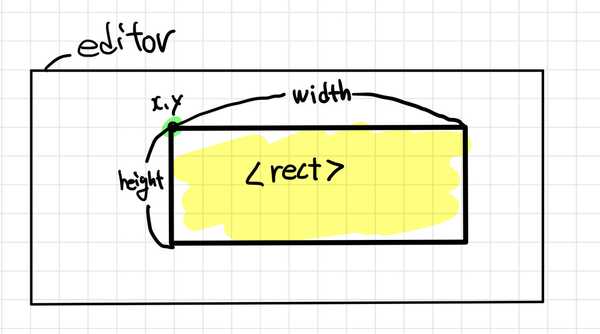 editor
x,y
width
height
<rect>